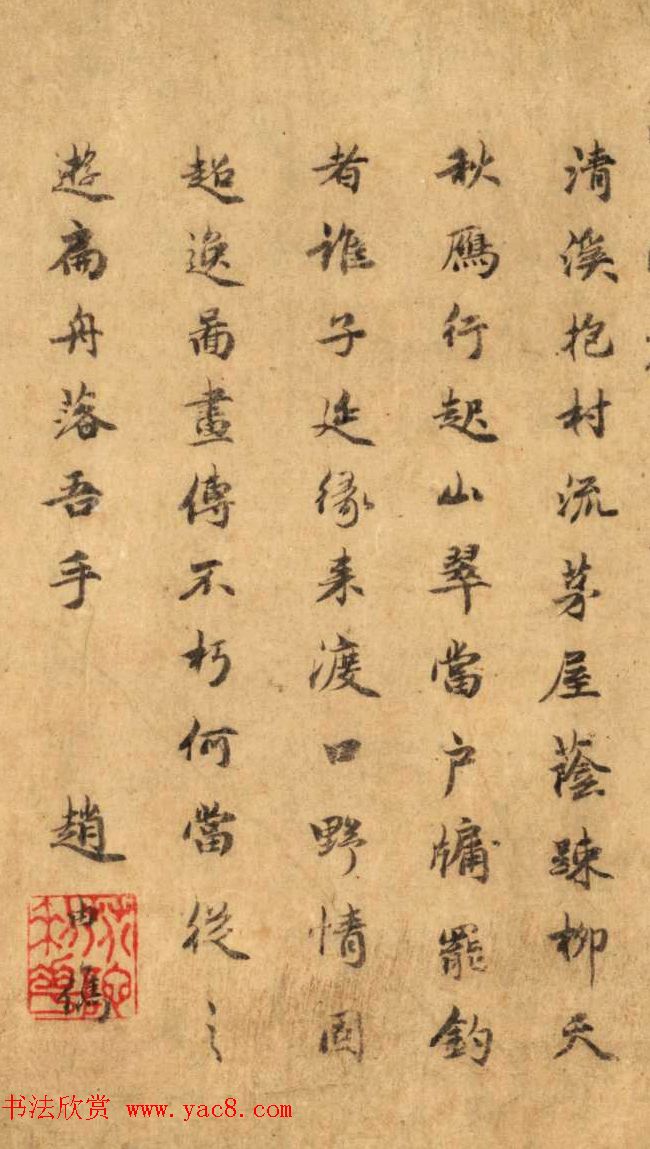 清溪抱村流茅屋蔭踈柳天
秋鴈行起山翠當户牖罷釣
者誰子延緣来渡口野情固
超逸啚畫傳不朽何當從之
遊扁舟落吾手 趙由儁
书法欣赏 www.yac8.com